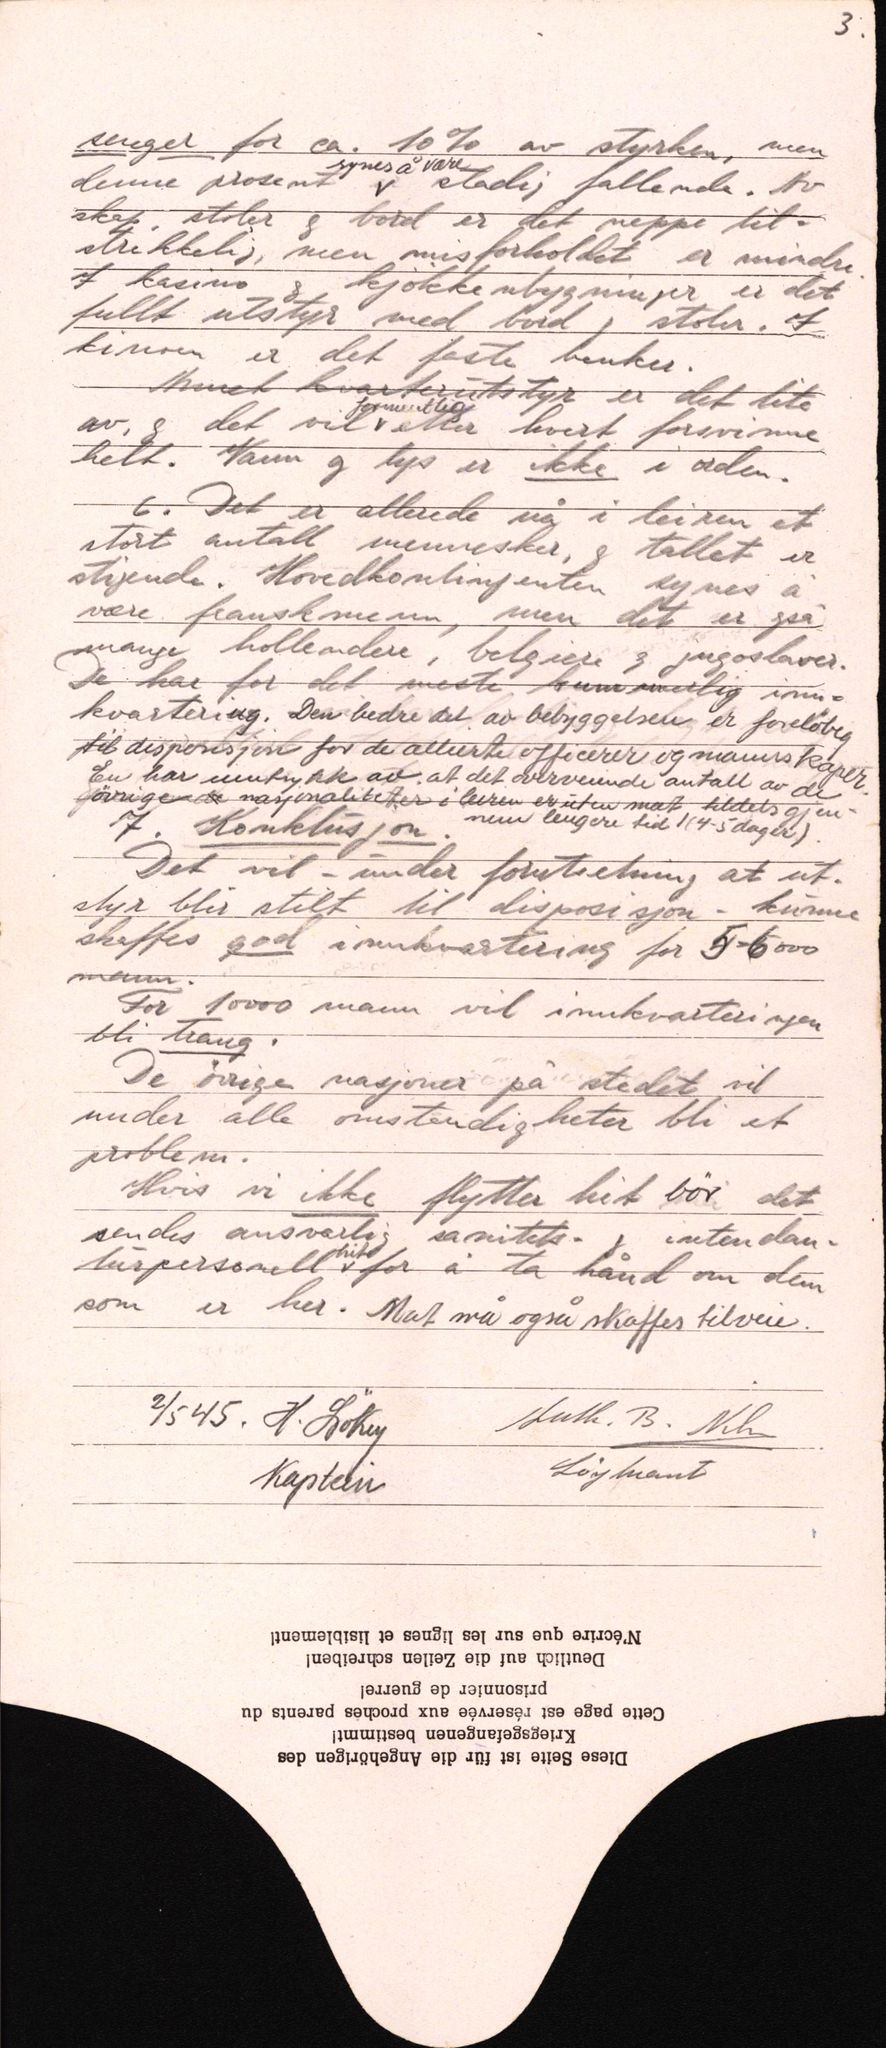 3.
senger for ca. 10% av styrken, men
denne prosent synes å være stadig fallende. Av
skap, stoler & bord er det neppe til-
strekkelig, men misforholdet er mindre.
I kasino & kjökkenbygninger er det
fullt utstyr med bord & stoler. I
kinoen er det faste benker.
Annet kvarterutstyr er det lite
av, & det vil formentlig etter hvert forsvinne
helt. Vann & lys er ikke i orden.
6. Det er allerede nå i leiren et
stort antall mennesker, & tallet er
stigende. Hovedkontingenten synes å
være franskmenn, men det er også
mange hollendere, belgiere & jugoslaver.
De har for det meste kummerlig inn-
kvartering. Den bedre del av bebyggelsen er foreløbig
til disposisjon for de allierte officerer og mannskaper.
En har inntrykk av at det overveiende antall av de
övrige nasjonaliteter i leiren er uten mat tildels gjen-
nem lengere tid (4-5 dager).
7. Konklusjon.
Det vil - under forutsetning at ut-
styr blir stilt til disposisjon - kunne
skaffes god innkvartering for 5-6000
mann.
For 10000 mann vil innkvarteringen
bli trang.
De övrige nasjoner på stedet vil
under alle omstendigheter bli et
problem.
Hvis vi ikke flytter hit bör det
sendes ansvarlig sanitets- & intendan-
turpersonell hit for å ta hånd om dem
som er her. Mat må også skaffes tilveie.
2/5 45. H.
Kaptein
B.
Löytnant
N'écrire que sur les lignes et lisiblement!
Deutlich auf die Zeilen schreiben!
prisonnier de guerre!
Cette page est réservée aux proches parents du
Kriegsgefangenen bestimmt!
Diese Seite ist für die Angehörigen des